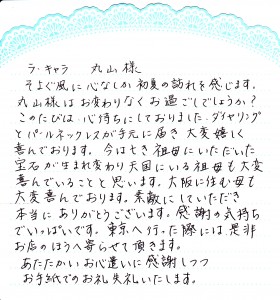 ラ・キャラ　丸山様
そよぐ風に心なしか初夏の訪れを感じます。
丸山様はお変わりなくお過ごしでしょうか？
このたびは、心待ちにしておりました、ダイヤリング
とパールネックレスが手元に届き大変嬉しく
喜んでおります。今は亡き祖母にいただいた
宝石が生まれ変わり天国にいる祖母も大変
喜んでいることと思います。大阪に住む母も
大変喜んでおります。素敵にしていただき
本当にありがとうございます。感謝の気持ち
でいっぱいです。東京へ行った際には、是非
お店のほうへ寄らせて頂きます。
あたたかいお心遣いに感謝しつつ
お手紙でのお礼失礼いたします。